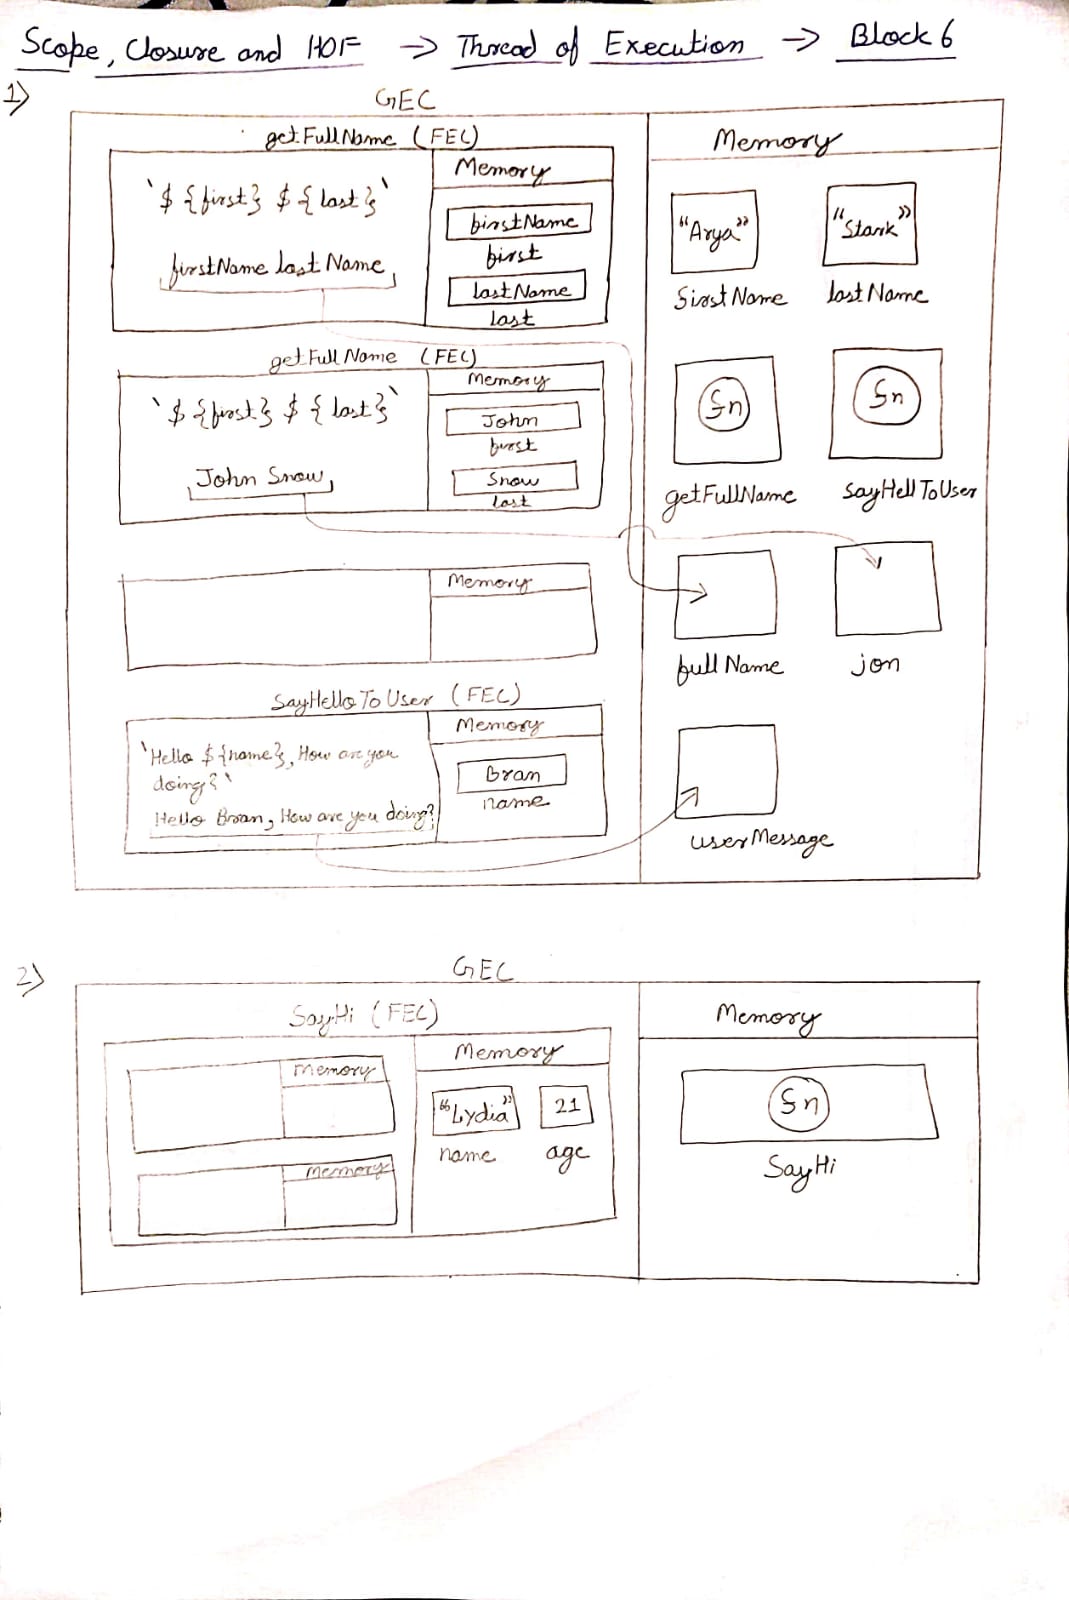 Scope, Closure and HOF → Thread of Execution → Block 6
1)
GEC
getFullName (FEC)
Memory
`${first} ${last}`
firstName last Name
firstName
first
lastName
last
getFullName (FEC)
Memory
`${first} ${last}`
John Snow
John
first
Snow
last
Memory
SayHello To User (FEC)
Memory
`Hello ${name}, How are you
doing?`
Hello Bran, How are you doing?
Bran
name
Memory
"Arya"
"Stark"
firstName
lastName
fn
fn
getFullName
sayHell To User
full Name
jon
userMessage
2)
GEC
SayHi (FEC)
Memory
Memory
Memory
"Lydia"
21
name
age
Memory
fn
SayHi